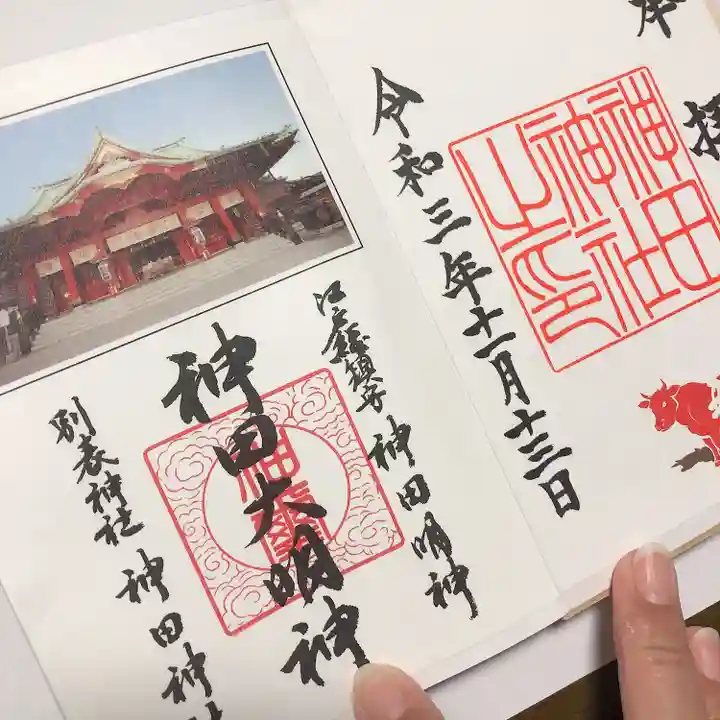 奉拝
神田神社之印
令和三年十一月十三日
江戸総鎮守 神田明神
神田大明神
別表神社 神田神社